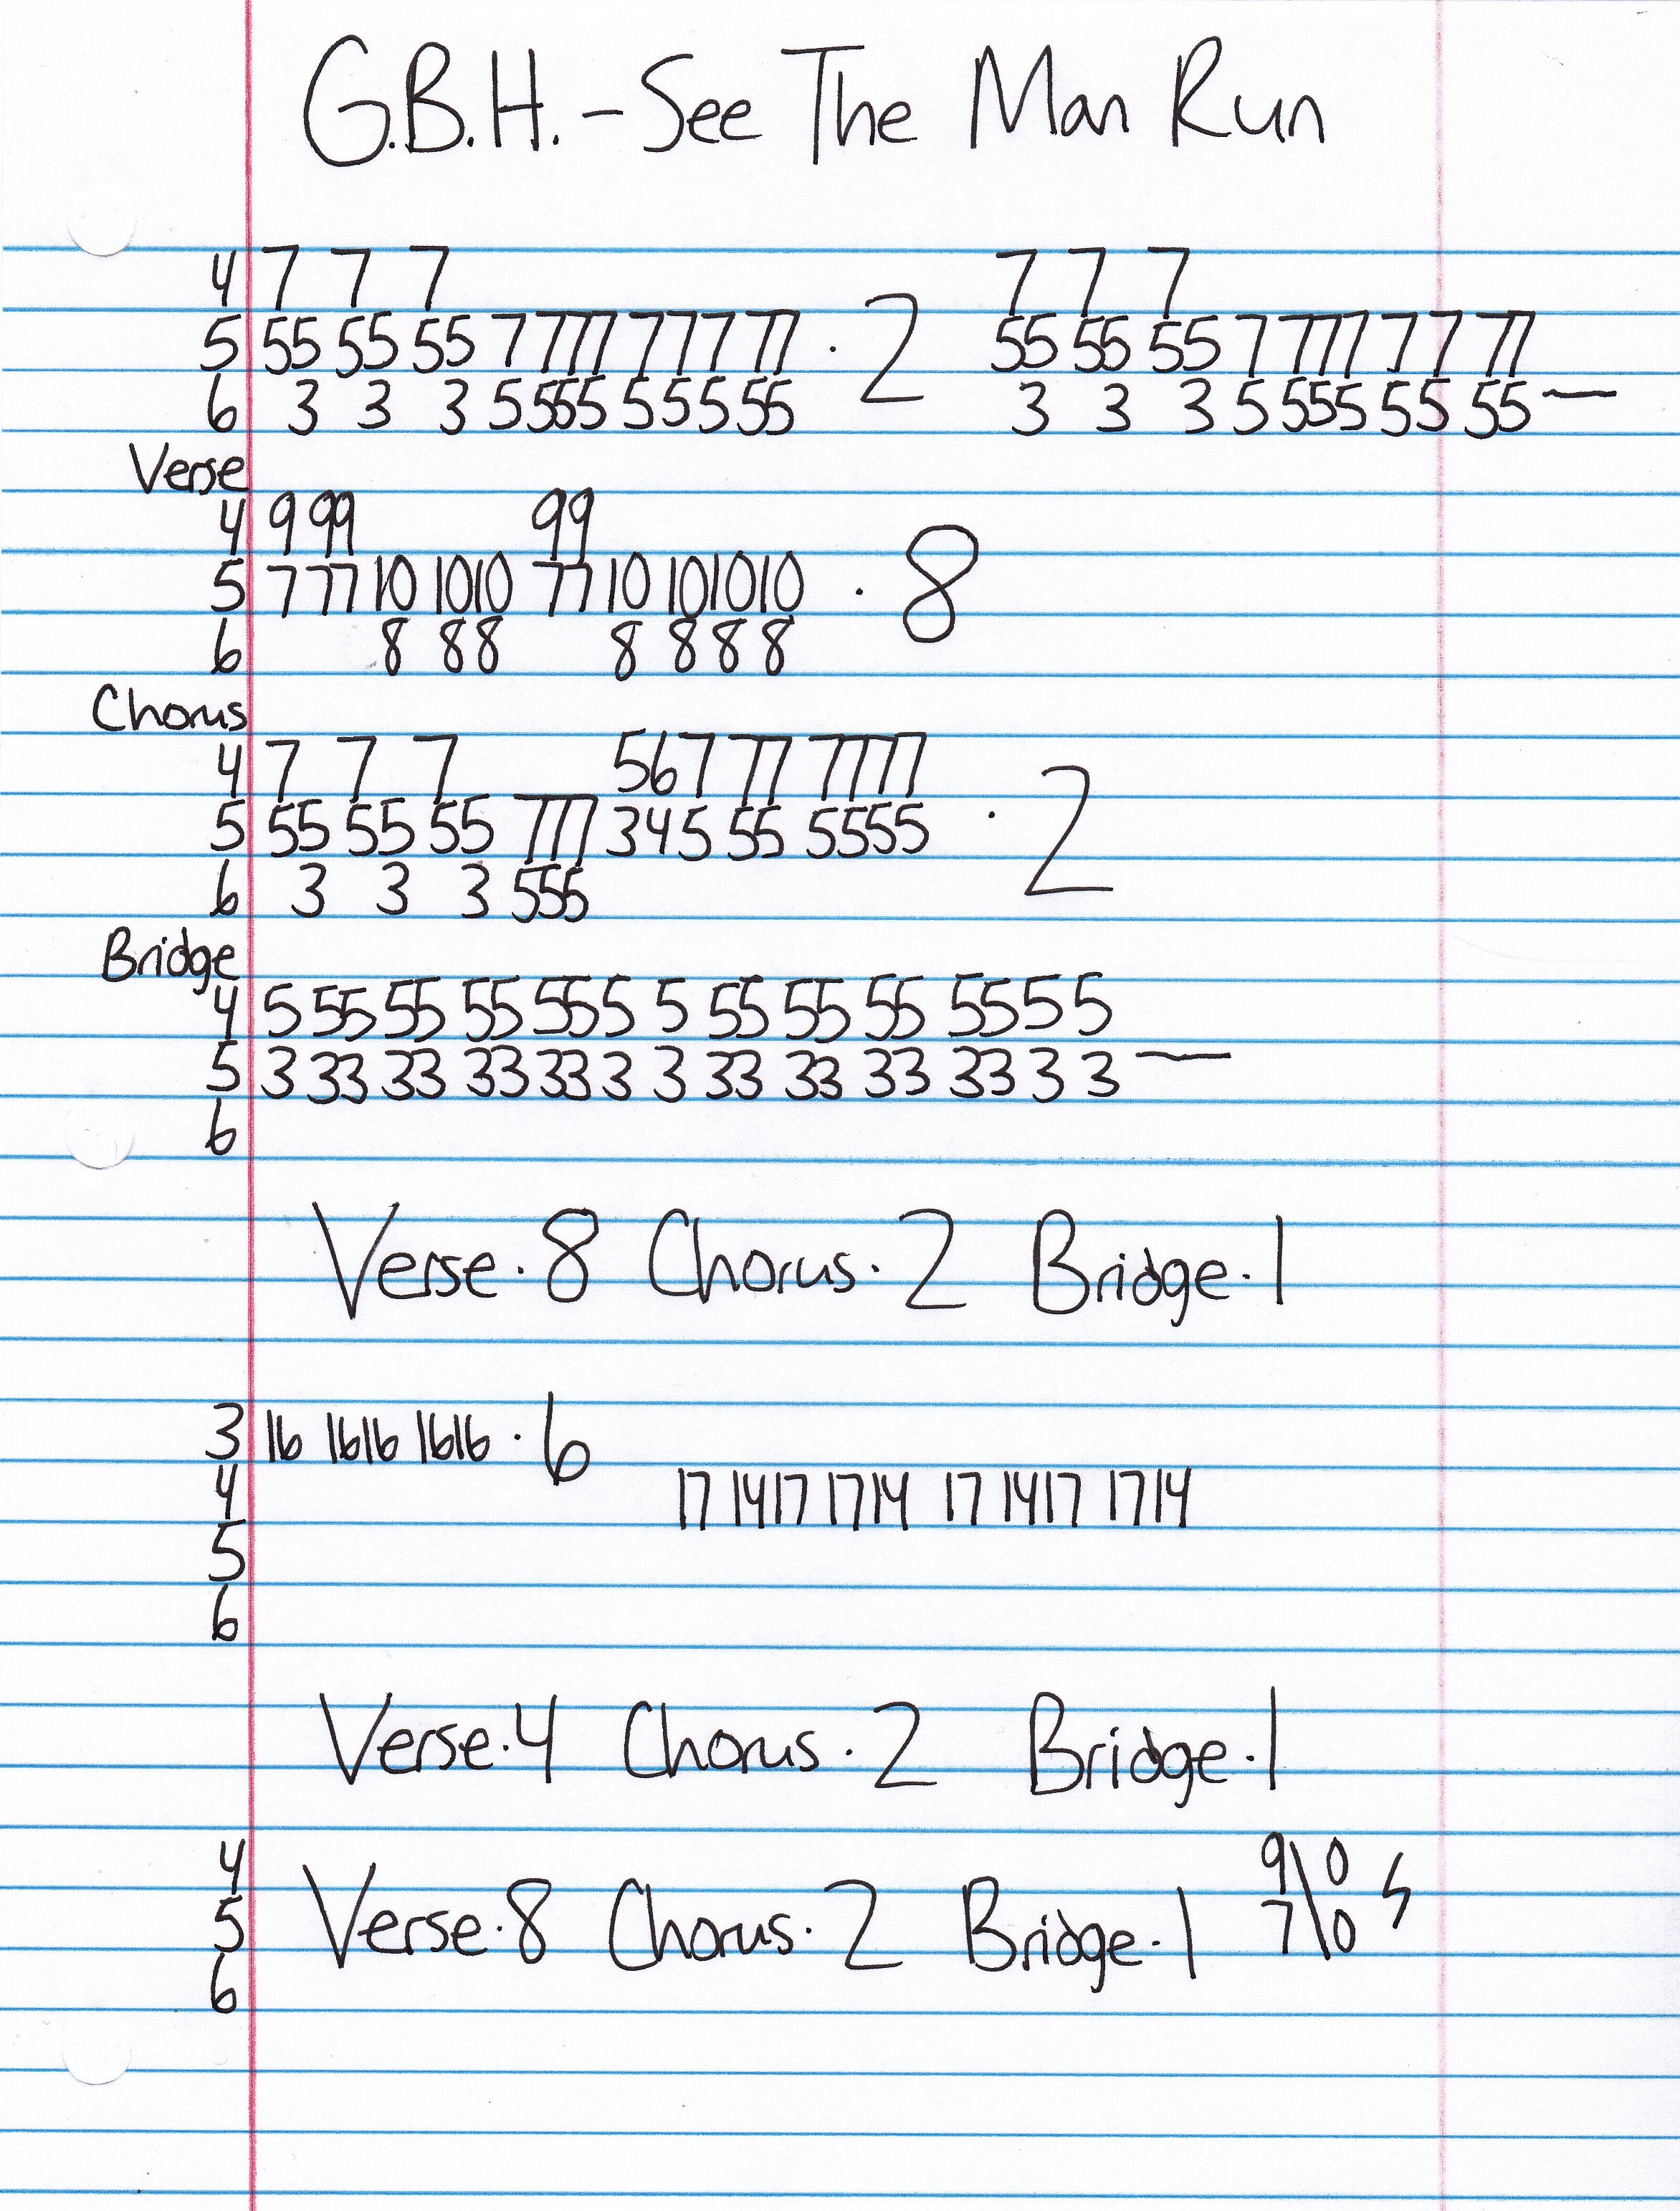 G.B.H. - See The Man Run
4 7 7 7 7 7 7
5 55 55 55 7 777 7 7 7 77 · 2 55 55 55 7 777 7 7 77
6 3 3 3 5 555 5 5 5 55 3 3 3 5 555 55 55 —
Verse
4 9 99 99
5 7 77 10 1010 77 10 101010 · 8
6 8 88 8 8 8 8
Chorus
4 7 7 7 567 77 7777
5 55 55 55 777 345 55 5555 · 2
6 3 3 3 555
Bridge
4 5 55 55 55 555 5 55 55 55 5555
5 3 33 33 33 333 3 33 33 33 33 3 3 —
6
Verse · 8 Chorus · 2 Bridge · 1
3 16 1616 1616 · 6
4 17 1417 1714 17 1417 1714
5
6
Verse · 4 Chorus · 2 Bridge · 1
4 9\0
5 Verse · 8 Chorus · 2 Bridge · 1 7\0
6